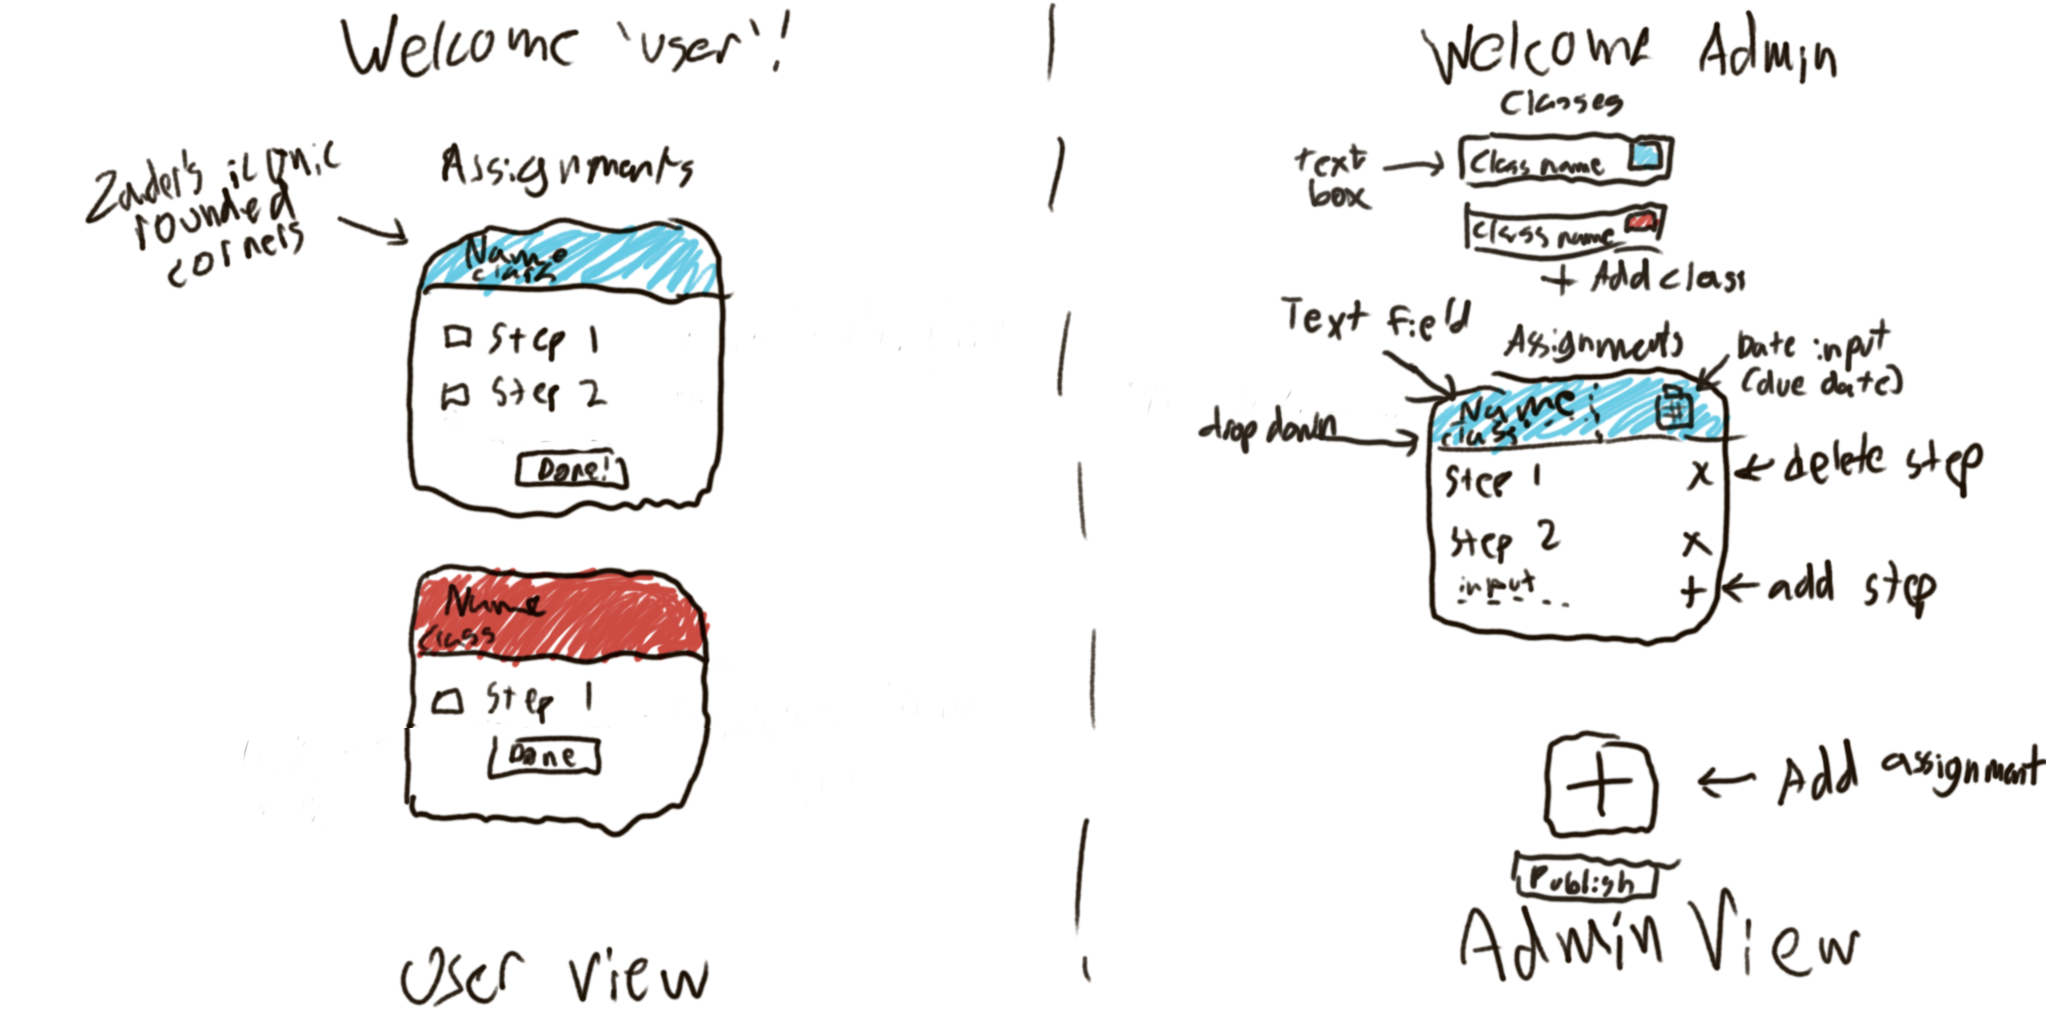 Welcome 'user'!
Zader's iconic
rounded
corners
Assignments
Name
class
Step 1
Step 2
Done!
Name
class
Step 1
Done
User View
Welcome Admin
Classes
text
box
Class name
Class name
+ Add class
Text Field
Assignments
Date input
(due date)
drop down
Name
class
Step 1 x
delete step
Step 2 x
input +
add step
+
Add assignment
Publish
Admin View